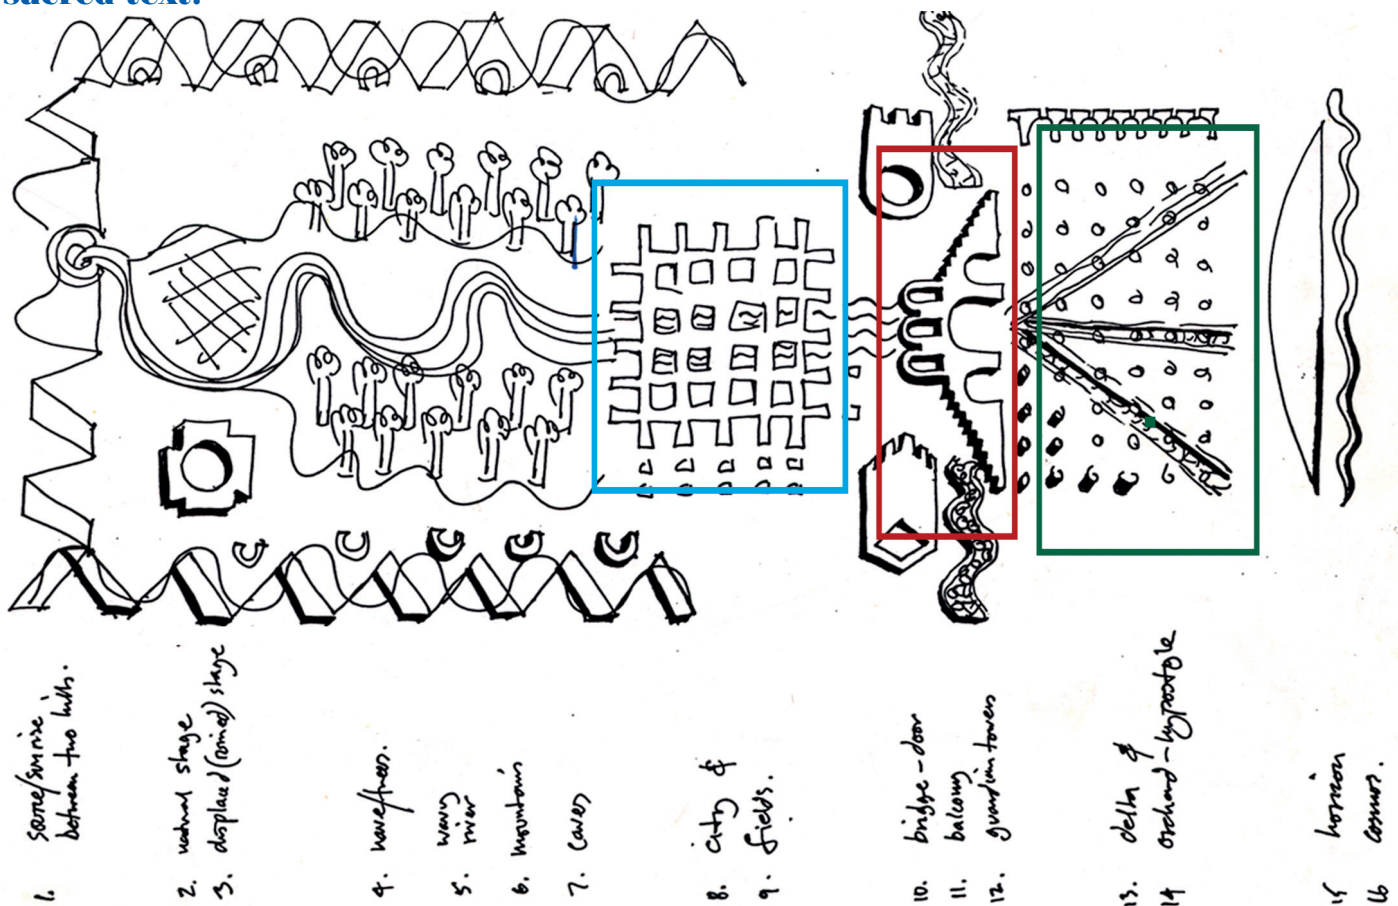 sacred text.
1. source/sunrise
between two hills.
2. natural stage
3. displaced (ruined) stage
4. nave/trees.
5. wavy
river
6. mountains
7. caves
8. city &
9. fields.
10. bridge-door
11. balcony
12. guardian towers
13. delta &
14 orchard-hypostyle
15 horizon
16 cosmos.